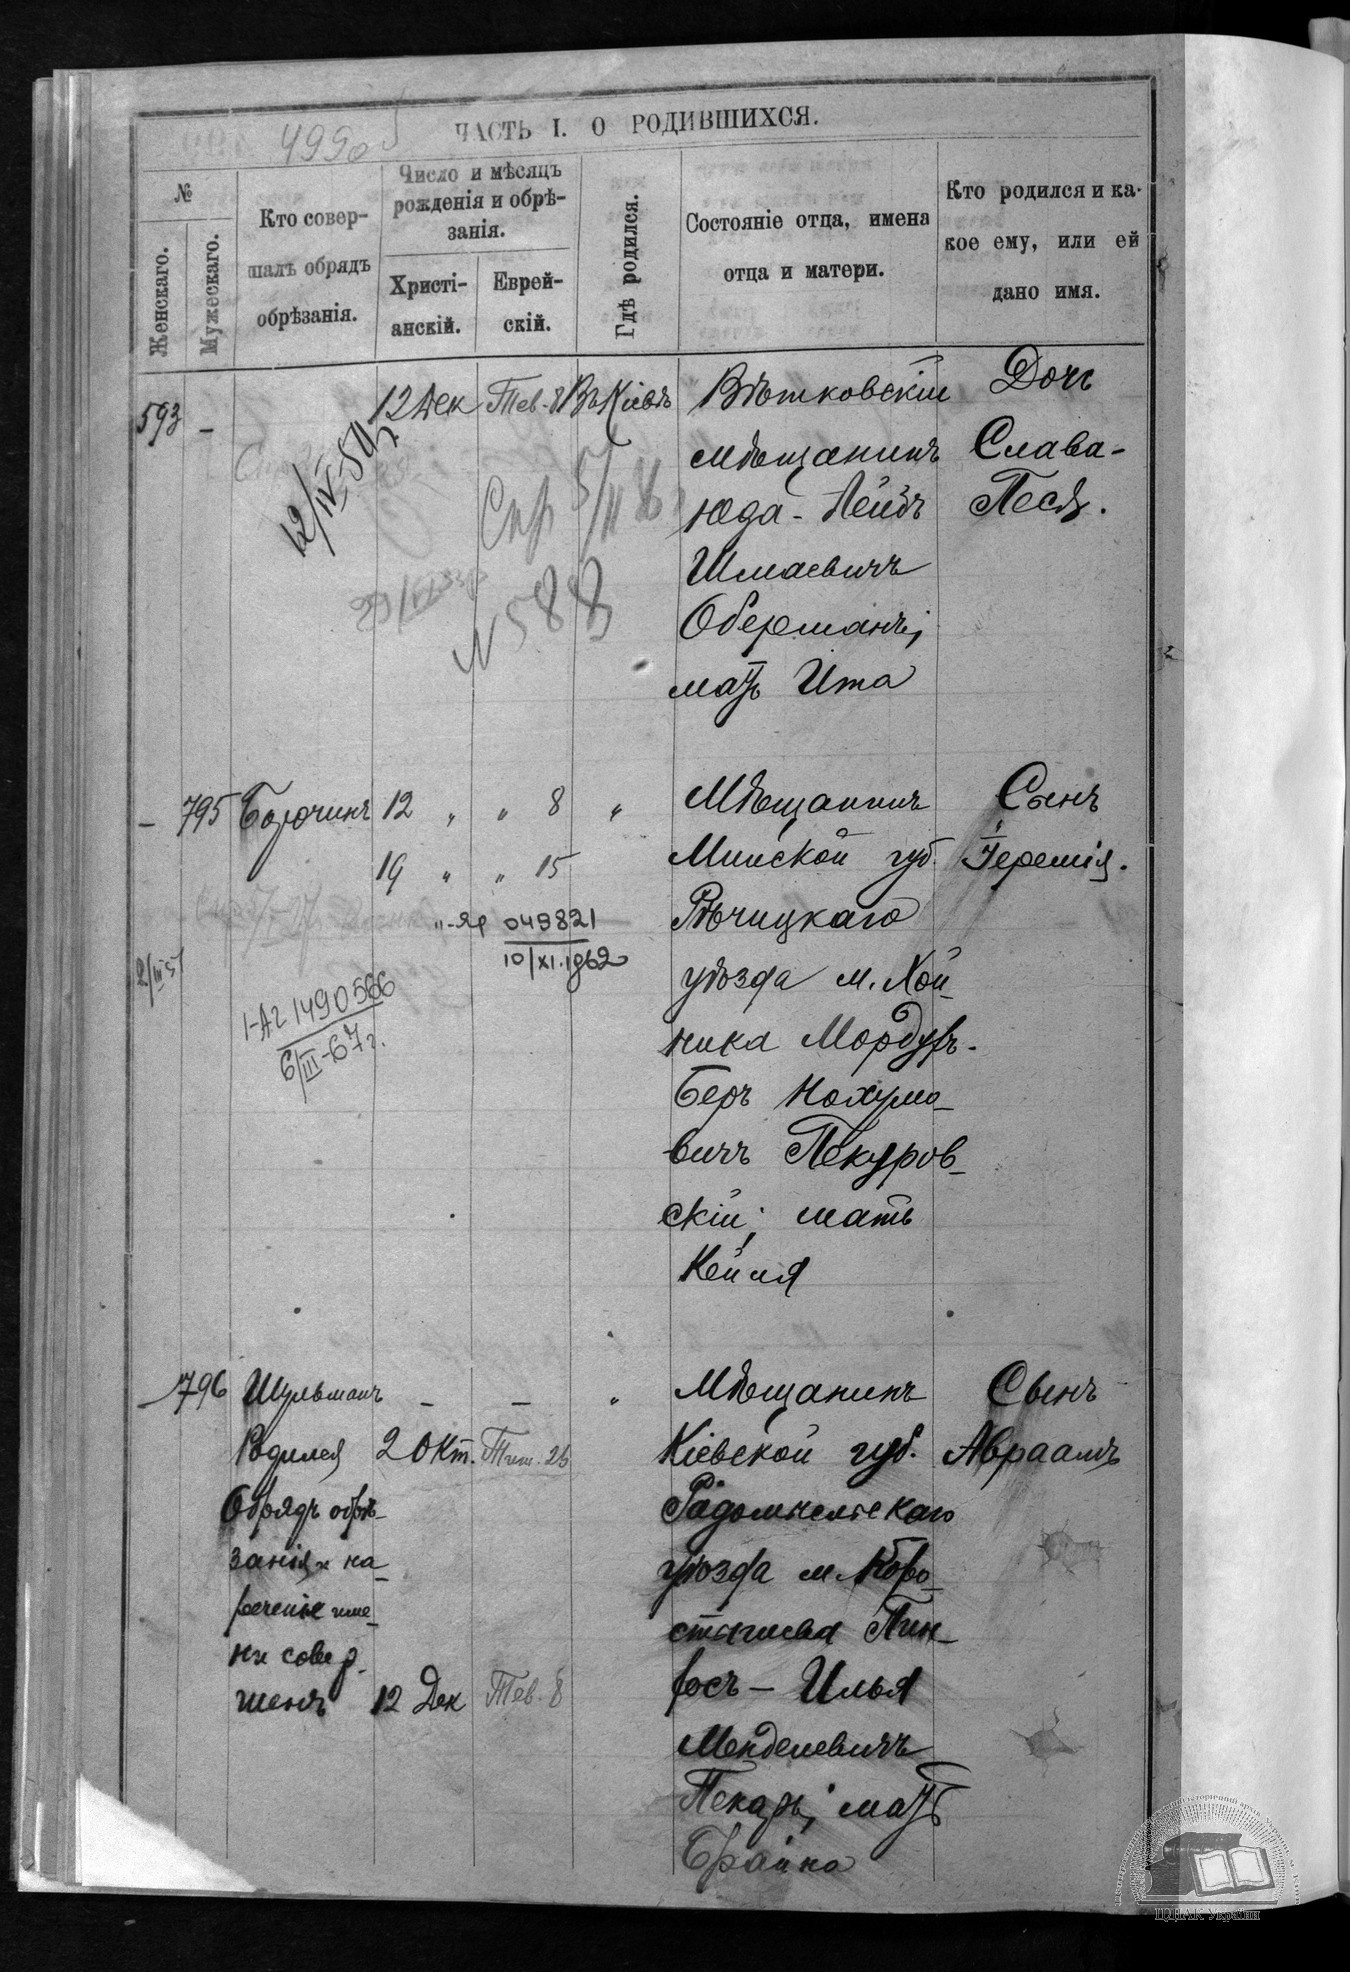 499 об
ЧАСТЬ I. О РОДИВШИХСЯ.
№
Женскаго.
Мужескаго.
Кто совер-
шалъ обрядъ
обрѣзанія.
Число и мѣсяцъ
рожденія и обрѣ-
занія.
Христі-
анскій.
Еврей-
скій.
Гдѣ родился.
Состояніе отца, имена
отца и матери.
Кто родился и ка-
кое ему, или ей
дано имя.
593 – 12 Дек Тев. 8 Въ Кіевѣ
Вѣтковскій
мѣщанинъ
Юда-Лейбъ
Шмаевичъ
Оберманъ;
мать Ита
Дочь
Слава-
Песя.
12/IV-50
Спр 5/II
N 588
– 795 Борочинъ 12 „ „ 8 „
19 „ „ 15
Мѣщанинъ
Минской губ.
Рѣчицкаго
уѣзда м. Хой-
ники Мордухъ-
Беръ Нохумо-
вичъ Пекуров-
скій; мать
Кейля
Сынъ
Іеремія.
„-Яр 049821
10/XI.1962
2/III 51
1-АГ 1490566
6/III-67 г.
– 796 Шульманъ – – „
Родился 2 Окт. Тиш. 26
Обрядъ обрѣ-
занія и на-
реченіе име-
ни совер-
шенъ 12 Дек Тев. 8
Мѣщанинъ
Кіевской губ.
Радомысльскаго
уѣзда м. Коро-
стышева Пин-
хосъ – Илья
Менделевичъ
Пекарь; мать
Брайна
Сынъ
Авраамъ
ЦДІАК України